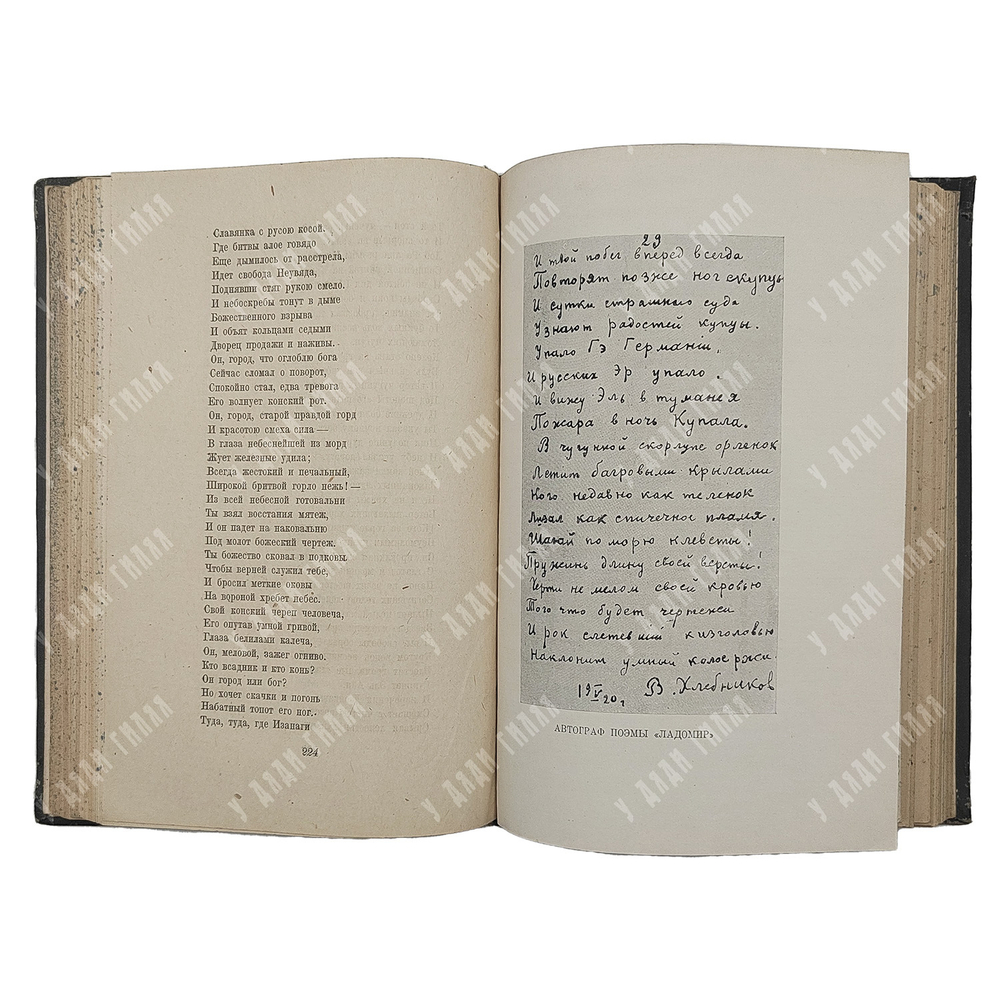 Славянка с русою косой.
Где битвы алое говядо
Еще дымилось от расстрела,
Идет свобода Неувяда,
Поднявши стяг рукою смело.
И небоскребы тонут в дыме
Божественного взрыва
И объят кольцами седыми
Дворец продажи и наживы.
Он, город, что оглоблю бога
Сейчас сломал о поворот,
Спокойно стал, едва тревога
Его волнует конский рот.
Он, город, старой правдой горд
И красотою смеха сила —
В глаза небеснейшей из морд
Жует железные удила;
Всегда жестокий и печальный,
Широкой бритвой горло нежь! —
Из всей небесной готовальни
Ты взял восстания мятеж,
И он падет на наковальню
Под молот божеский чертеж.
Ты божество сковал в подковы
Чтобы верней служил тебе,
И бросил меткие оковы
На вороной хребет небес.
Свой конский череп человеча,
Его опутав умной гривой,
Глаза белилами калеча,
Он, меловой, зажег огниво.
Кто всадник и кто конь?
Он город или бог?
Но хочет скачки и погонь
Набатный топот его ног.
Туда, туда, где Изанаги
224
29
И твой побег вперед всегда
Повторят позже ног скупцы
И сутки страшного суда
Узнают радостей купцы.
Упало Гэ Германіи.
И русских Эр упало.
И вижу Эль в тумане я
Пожара в ночь Купала.
В чугунной скорлупе орленок
Летит багровыми крылами
Кого недавно как теленок
Лизал как спичечное пламя.
Шагай по морю клеветы!
Пружинь длину своей версты!
Черти не мелом своей кровью
Того что будет чертежи
И рок слетевший к изголовью
Наклонит умный колос ржи.
19 V 20 г В. Хлебников
АВТОГРАФ ПОЭМЫ «ЛАДОМИР»
У ДЯДИ ГИЛЯЯ